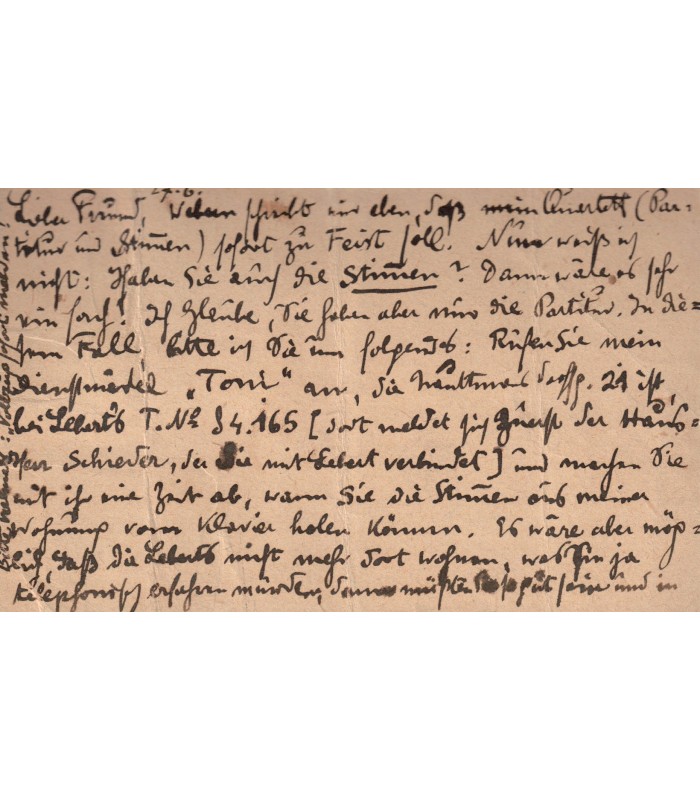 27.6.
Lieber Freund, Webern schreibt mir eben, daß mein Quartett (Par=
titur und Stimmen) sofort zu Feist soll. Nun weiß ich
nicht: Haben Sie auch die Stimmen? Dann wäre es sehr
einfach! Ich glaube, Sie haben aber nur die Partitur. In die=
sem Fall bitte ich Sie um folgendes: Rufen Sie mein
Dienstmädel „Toni" an, die 21 ist,
bei Lebert's T. No 84.165 [dort meldet sich zuerst der Haus=
herr Schieder, der Sie mit Lebert verbindet] und machen Sie
mit ihr eine Zeit ab, wann Sie die Stimmen aus meiner
Wohnung vom Klavier holen können. Es wäre aber mög=
lich, daß die Leberts nicht mehr dort wohnen, was Sie ja
telephonisch erfahren würden, dann müßten Sie so gut sein und in